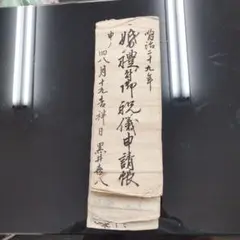 明治二十九年
婚禮御祝儀申請帳
申ノ四八月十九吉祥日 黒井喜八